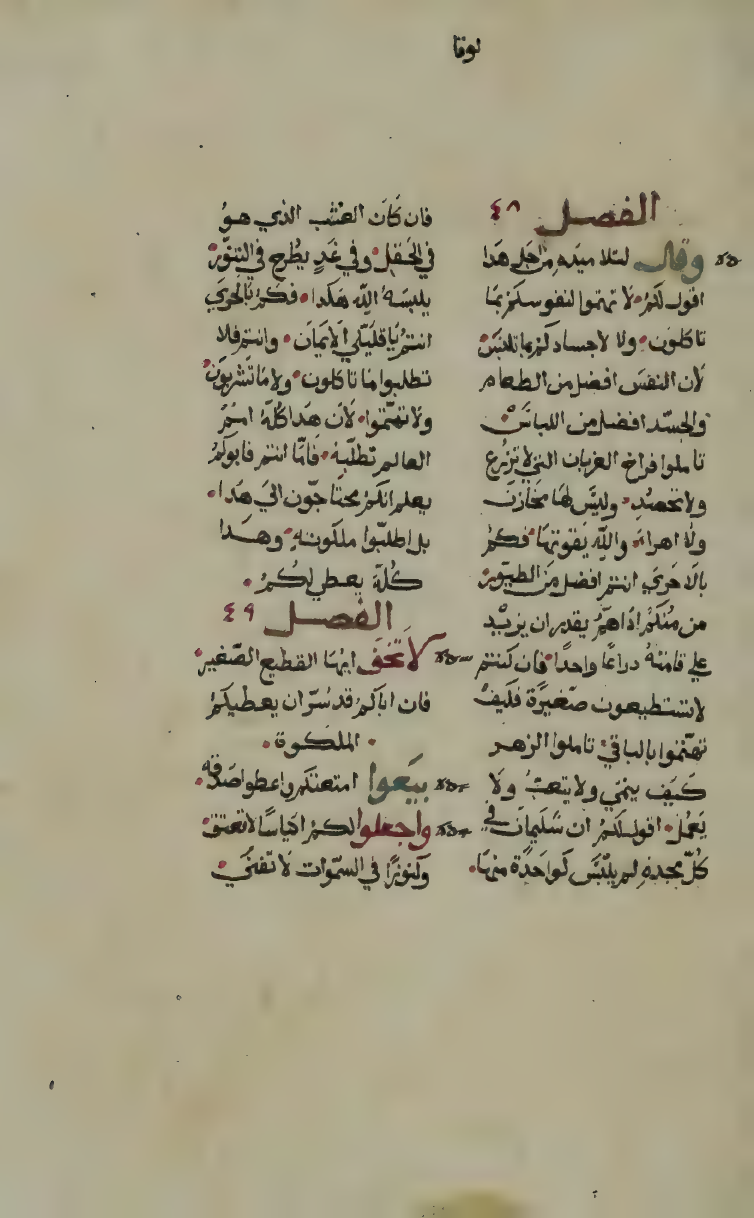 لوقا
الفصل ٤٨
وقال لتلاميده من اجل هدا
اقول لكم لا تهتموا لنفوسكم بما
تاكلون ولا لاجسادكم بما تلبس
لان النفس افضل من الطعام
والجسد افضل من اللباس
تاملوا فراخ الغربان التي لا تزرع
ولا تحصد وليس لها مخازن
ولا اهراء والله يقوتها فكم
بالاحري انتم افضل من الطيور
من منكم ادا هم يقدر ان يزيد
علي قامته دراعا واحدا فان كنتم
لا تستطيعون صغيرة فكيف
تهتموا بالباقي تاملوا الزهر
كيف ينمي ولا يتعب ولا
يعمل اقول لكم ان سليمان في
كل مجده لم يلبس كواحدة منها
فان كان العشب الذي هو
في الحقل وفي غد يطرح في التنور
يلبسه الله هكدا فكم بالحري
انتم يا قليلي الايمان وانتم فلا
تطلبوا ما تاكلون ولا ما تشربون
ولا تهتموا لان هدا كله امم
العالم تطلبه فاما انتم فابوكم
يعلم انكم محتاجون الي هدا
بل اطلبوا ملكوته وهدا
كله يعطي لكم
الفصل ٤٩
لا تخف ايها القطيع الصغير
فان اباكم قد سر ان يعطيكم
الملكوة
بيعوا امتعتكم واعطوا صدقه
واجعلوا لكم اكياسا لا تعتق
وكنوزا في السموات لا تفني